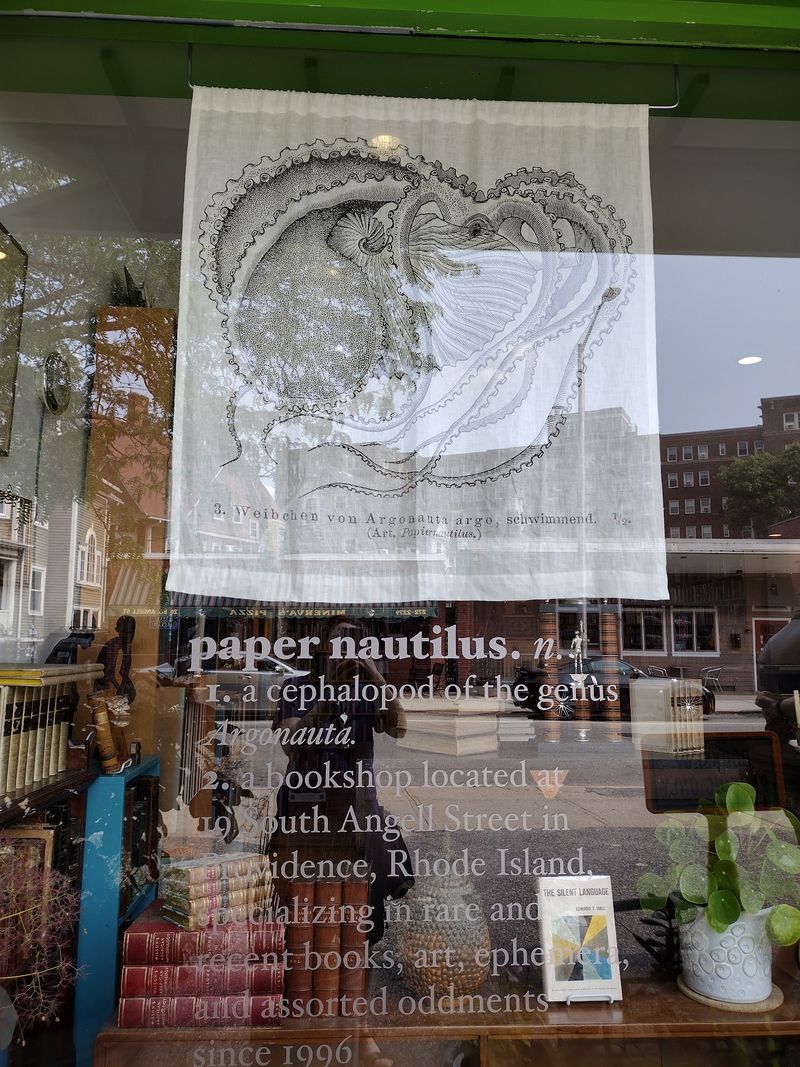 3. Weibchen von Argonauta argo, schwimmend. 1/2.
(Art. Papiernautilus.)
MINERVA'S PIZZA
272-2279
paper nautilus. n.
1. a cephalopod of the genus
Argonauta.
2. a bookshop located at
19 South Angell Street in
Providence, Rhode Island,
specializing in rare and
recent books, art, ephemera,
and assorted oddments
since 1996
THE SILENT LANGUAGE
EDWARD T. HALL